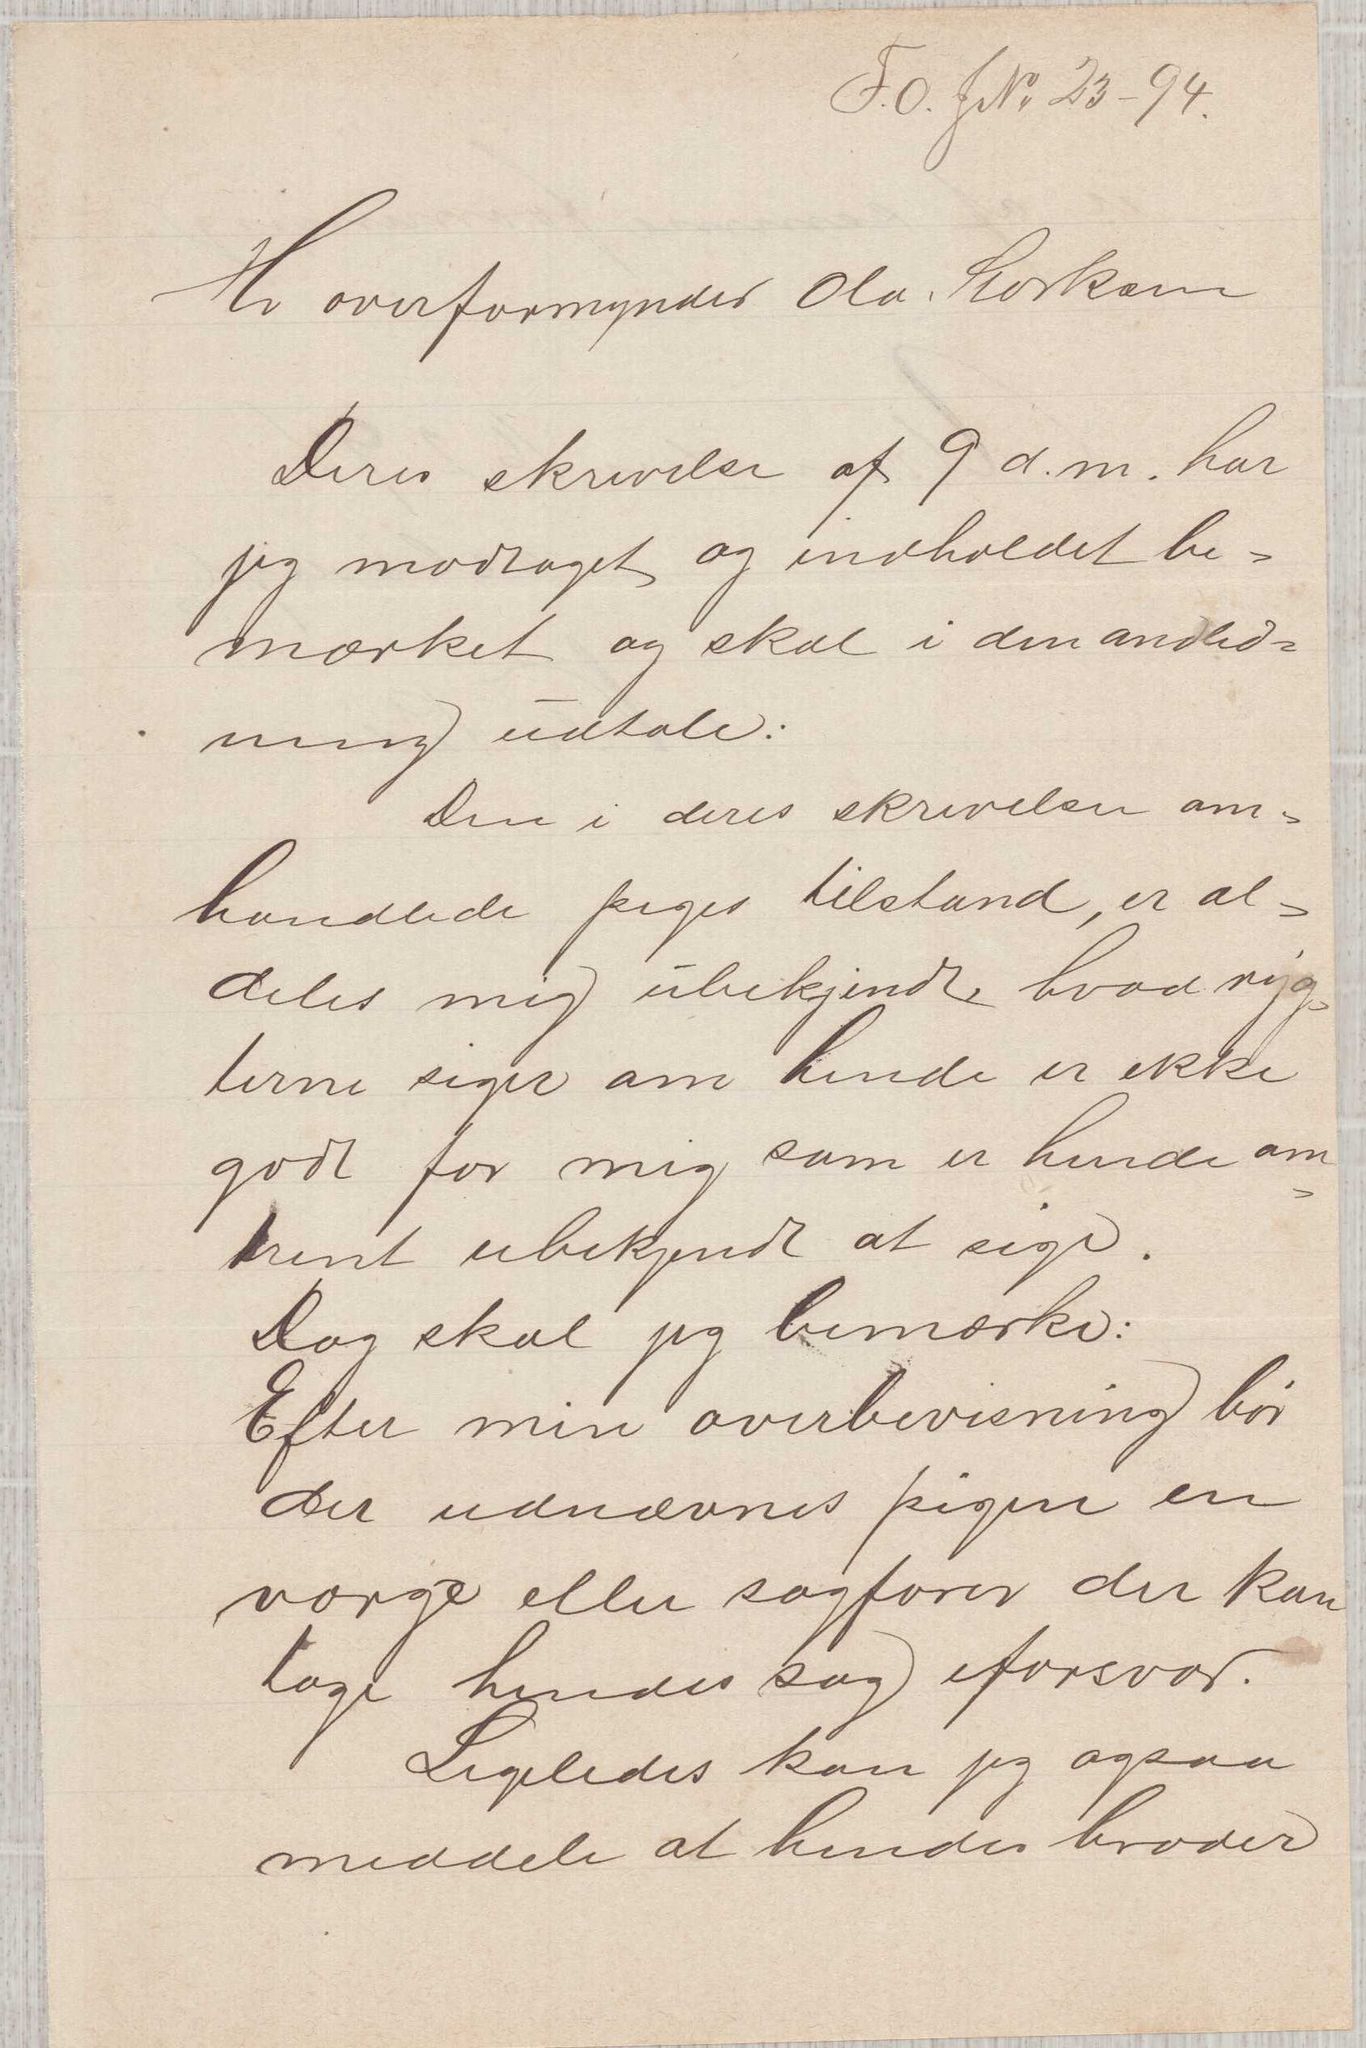 F.O. JNo 23-94.
Hr overformynder Ola. Storksen
Deres skrivelse af 9 d.m. har
jeg modtaget og indholdet be=
mærket og skal i den anled=
ning udtale:
Den i deres skrivelse om=
handlede piges tilstand, er al=
deles mig ubekjendt, hvad ryg=
terne siger om hende er ikke
godt for mig som er hende om=
trent ubekjendt at sige.
Dog skal jeg bemærke:
Efter min overbevisning bør
der udnævnes pigen en
værge eller sagfører der kan
tage hendes sag iforsvar.
Ligeledes kan jeg ogsaa
meddele at hendes broder